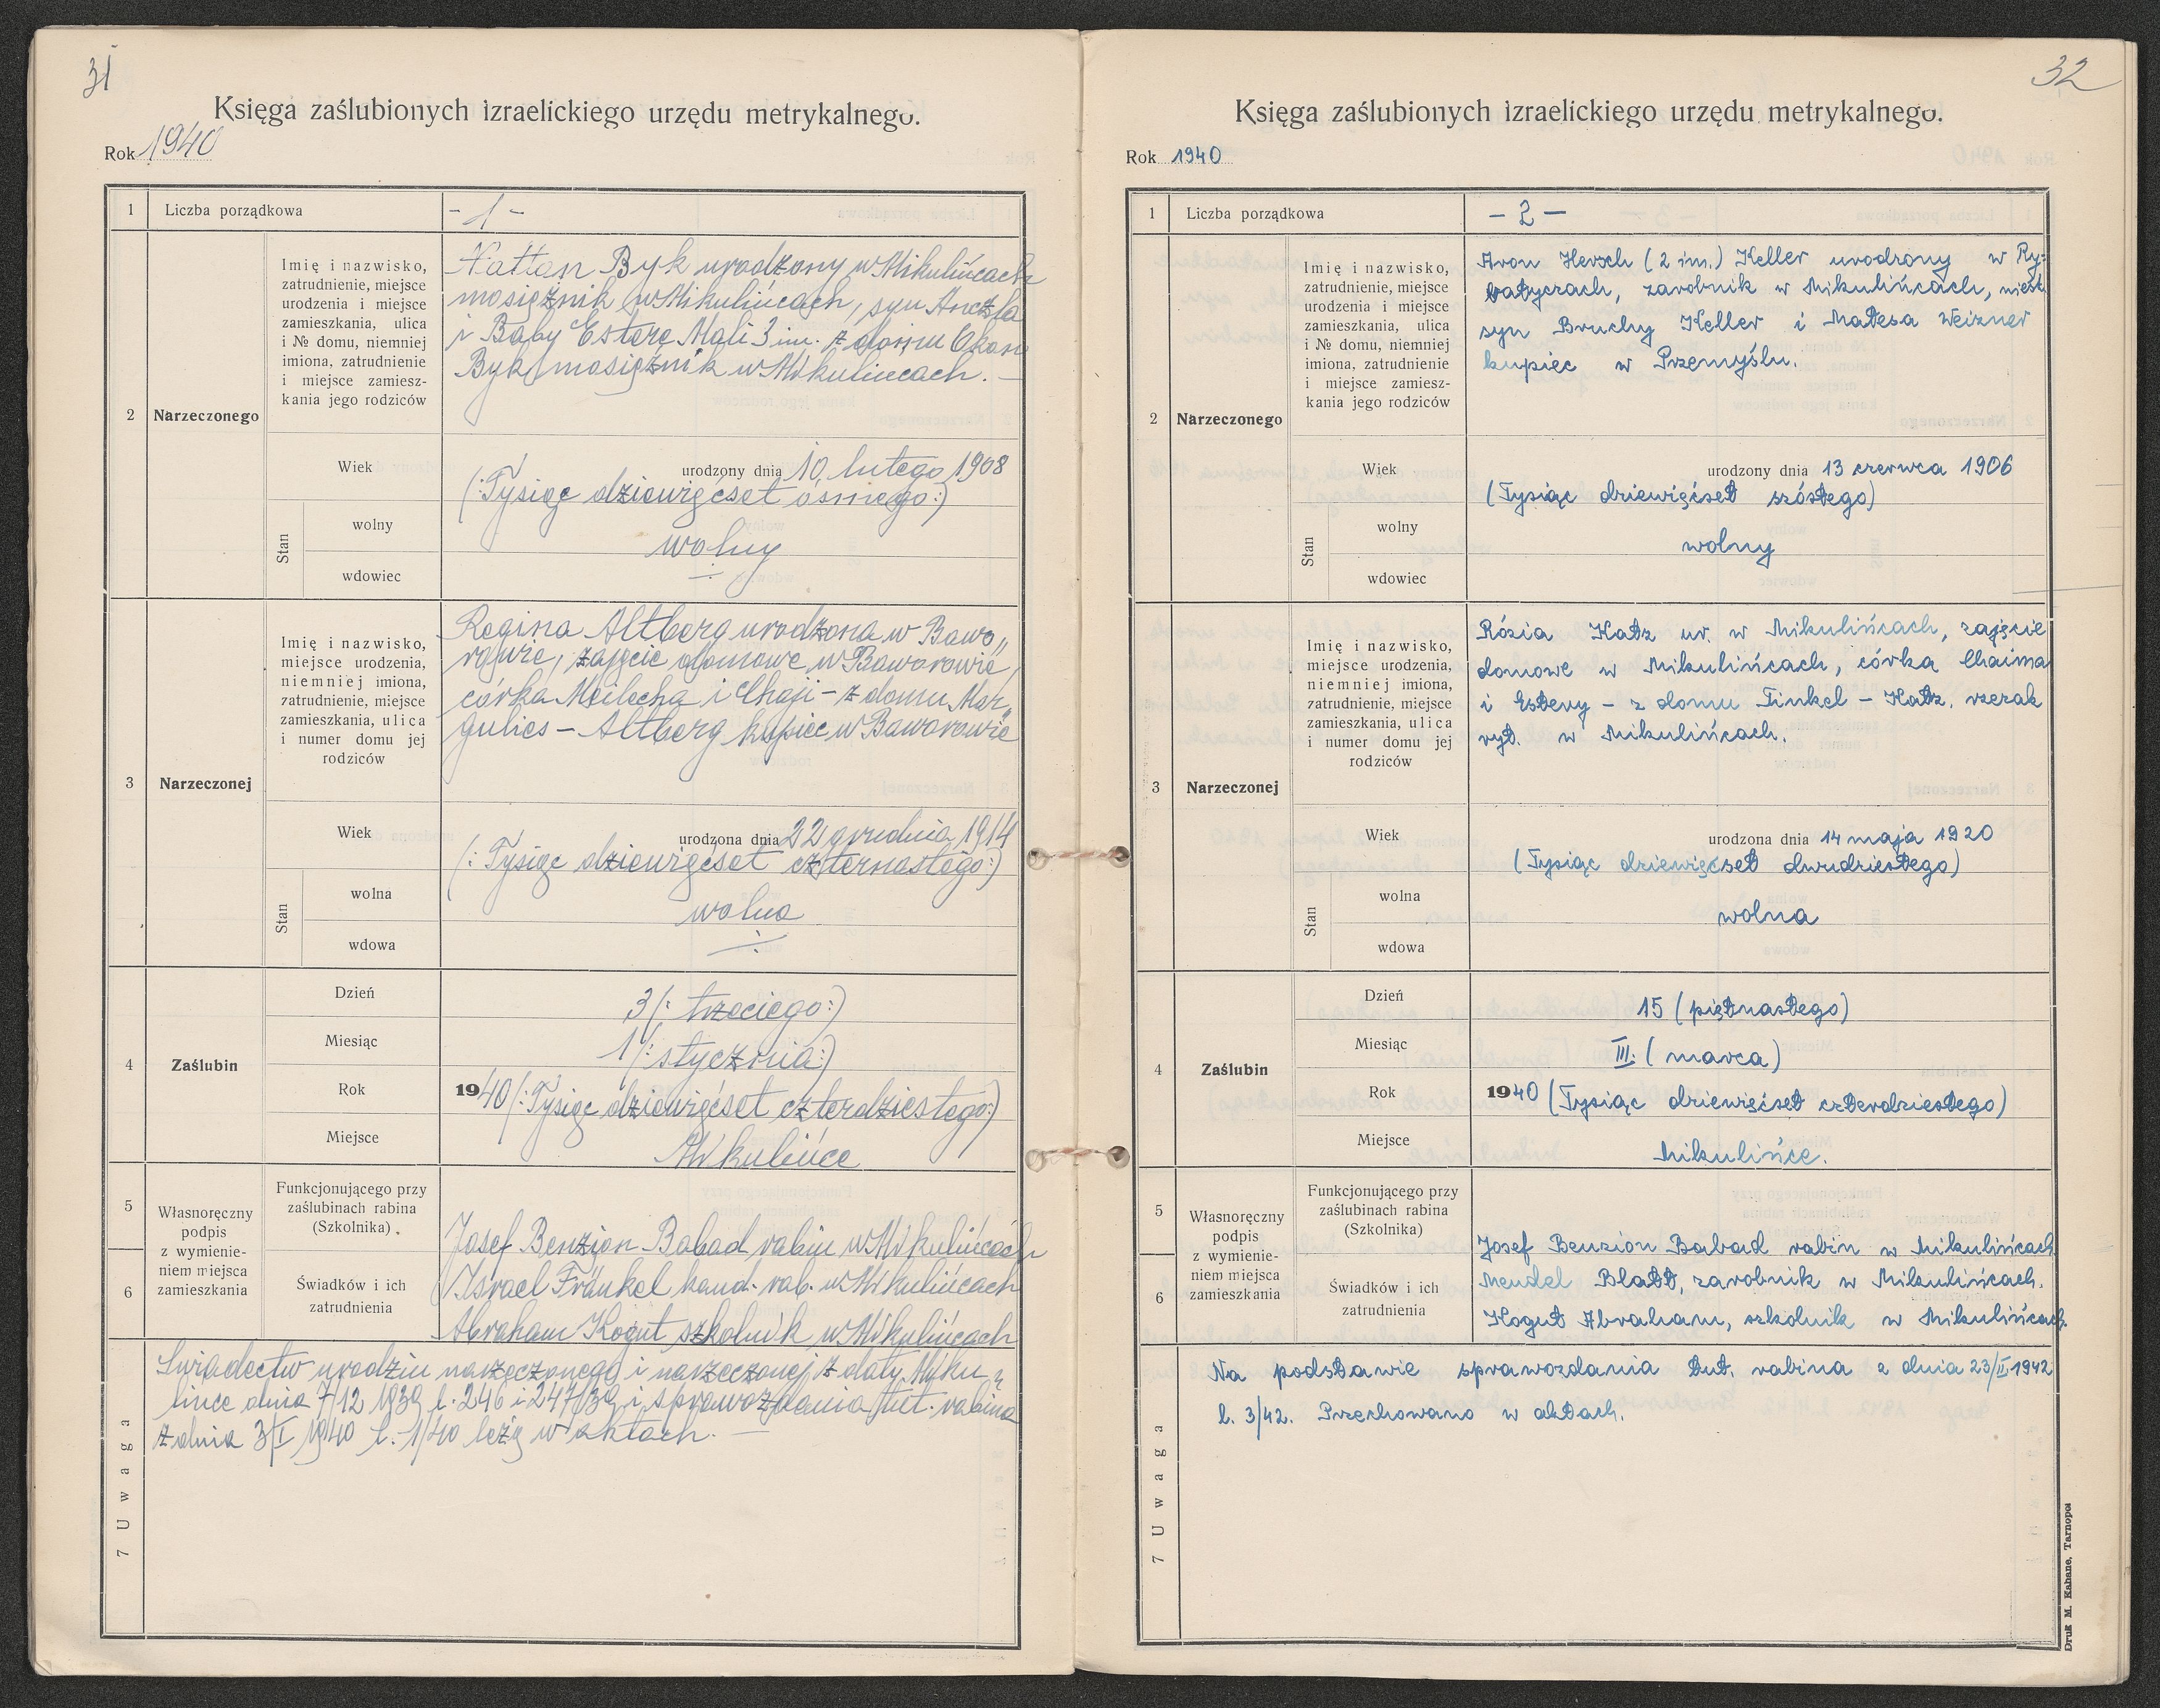 31
Księga zaślubionych izraelickiego urzędu metrykalnego.
Rok 1940
1 Liczba porządkowa - 1 -
2 Narzeczonego
Imię i nazwisko,
zatrudnienie, miejsce
urodzenia i miejsce
zamieszkania, ulica
i № domu, niemniej
imiona, zatrudnienie
i miejsce zamiesz-
kania jego rodziców
Nattan Byk urodzony w Mikulińcach
mosiężnik w Mikulińcach, syn Anczla
i Baby Estere Mali 3 im. z domu
Byk mosiężnik w Mikulińcach. —
Wiek urodzony dnia 10 lutego 1908
(: Tysiąc dziewięćset ósmego :)
Stan
wolny
wolny
wdowiec
3 Narzeczonej
Imię i nazwisko,
miejsce urodzenia,
niemniej imiona,
zatrudnienie, miejsce
zamieszkania, ulica
i numer domu jej
rodziców
Regina Altberg urodzona w Bawo„
rowie, zajęcie domowe w Baworowie,
córka Meilecha i Chaji - z domu Mar„
gulies - Altberg kupiec w Baworowie
Wiek urodzona dnia 22 grudnia 1914
(: Tysiąc dziewięćset czternastego :)
Stan
wolna
wolna
wdowa
4 Zaślubin
Dzień 3 (: trzeciego :)
Miesiąc 1 (: stycznia :)
Rok 1940 (: Tysiąc dziewięćset czterdziestego :)
Miejsce Mikulińce
5
6
Własnoręczny
podpis
z wymienie-
niem miejsca
zamieszkania
Funkcjonującego przy
zaślubinach rabina
(Szkolnika)
Josef Benzion Babad rabin w Mikulińcach
Świadków i ich
zatrudnienia
Israel Fränkel kand. rab. w Mikulińcach
Abraham Kogut szkolnik w Mikulińcach
7 Uwaga
Świadectw urodzin narzeczonego i narzeczonej z daty Miku„
lińce dnia 7/12 1939 l. 246 i 247/39 i sprawozdania tut. rabina
z dnia 3/I 1940 l. 1/40 leżą w aktach. —
32
Księga zaślubionych izraelickiego urzędu metrykalnego.
Rok 1940
1 Liczba porządkowa - 2 -
2 Narzeczonego
Imię i nazwisko,
zatrudnienie, miejsce
urodzenia i miejsce
zamieszkania, ulica
i № domu, niemniej
imiona, zatrudnienie
i miejsce zamiesz-
kania jego rodziców
Aron Hersch (2 im.) Keller urodzony w Ry-
botyczach, zarobnik w Mikulińcach, nieśl.
syn Bruchy Keller i Matesa Weizner
kupiec w Przemyślu.
Wiek urodzony dnia 13 czerwca 1906
(Tysiąc dziewięćset szóstego)
Stan
wolny
wolny
wdowiec
3 Narzeczonej
Imię i nazwisko,
miejsce urodzenia,
niemniej imiona,
zatrudnienie, miejsce
zamieszkania, ulica
i numer domu jej
rodziców
Rózia Katz ur. w Mikulińcach, zajęcie
domowe w Mikulińcach, córka Chaima
i Estery - z domu Finkel - Katz, rzezak
ryt. w Mikulińcach.
Wiek urodzona dnia 14 maja 1920
(Tysiąc dziewięćset dwudziestego)
Stan
wolna
wolna
wdowa
4 Zaślubin
Dzień 15 (piętnastego)
Miesiąc III. (marca)
Rok 1940 (Tysiąc dziewięćset czterdziestego)
Miejsce Mikulińce.
5
6
Własnoręczny
podpis
z wymienie-
niem miejsca
zamieszkania
Funkcjonującego przy
zaślubinach rabina
(Szkolnika)
Josef Benzion Babad rabin w Mikulińcach
Świadków i ich
zatrudnienia
Mendel Blatt, zarobnik w Mikulińcach.
Kogut Abraham, szkolnik w Mikulińcach.
7 Uwaga
Na podstawie sprawozdania tut. rabina z dnia 23/II 1942
l. 3/42. Przechowano w aktach.
Druk M. Kahane, Tarnopol